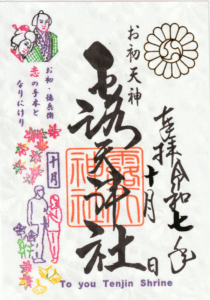 奉拝
令和七年
十月
日
お初天神
露天神社
お初・徳兵衛
恋の手本と
なりにけり
十月
To you Tenjin Shrine